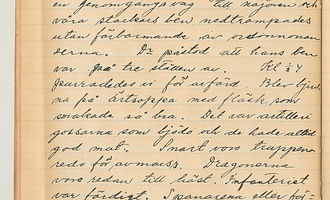 en genomgångsväg till majoren och
våra stackars ben nedtrampades
utan förbarmande av ordonnonan
derna. Dr påstod att hans ben
var på tre ställen av. Kl ¼ 4
purrades vi för avfärd. Blev bjud
na på ärtsoppa med fläsk som
smakade så bra. Det var artilleri
gossarna som bjöds och de hade alltid
god mat. Snart voro trupperna
redo för avmars. Dragonerna
voro redan till häst. Infanteriet
var färdigt. Spanarena eller för-